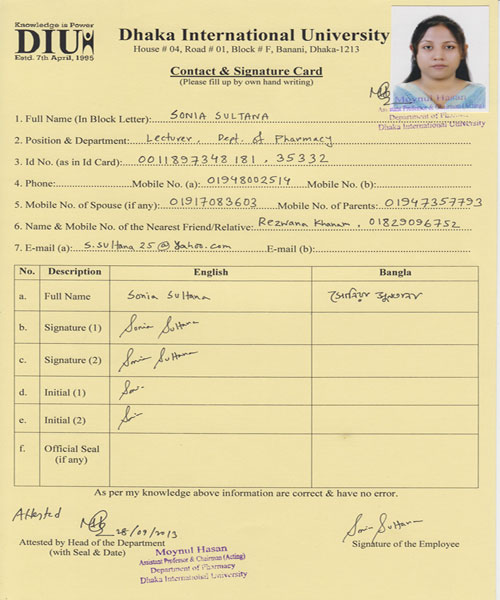 Knowledge is Power
DIU
Estd. 7th April, 1995
Dhaka International University
House # 04, Road # 01, Block # F, Banani, Dhaka-1213
Contact & Signature Card
(Please fill up by own hand writing)
Moynul Hasan
Assistant Professor & Chairman (Acting)
Department of Pharmacy
Dhaka International University
1. Full Name (In Block Letter): SONIA SULTANA
2. Position & Department: Lecturer, Dept. of Pharmacy
3. Id No. (as in Id Card): 0011897348181, 35332
4. Phone: Mobile No. (a): 01948002514 Mobile No. (b):
5. Mobile No. of Spouse (if any): 01917083603 Mobile No. of Parents: 01947357793
6. Name & Mobile No. of the Nearest Friend/Relative: Rezwana Khanam, 01829096752
7. E-mail (a): S.Sultana25@Yahoo.com E-mail (b):
No. Description English Bangla
a. Full Name Sonia Sultana
b. Signature (1) Sonia Sultana
c. Signature (2) Sonia Sultana
d. Initial (1)
e. Initial (2)
f. Official Seal (if any)
As per my knowledge above information are correct & have no error.
Attested
28/09/2013
Sonia Sultana
Attested by Head of the Department
(with Seal & Date)
Signature of the Employee
Moynul Hasan
Assistant Professor & Chairman (Acting)
Department of Pharmacy
Dhaka International University